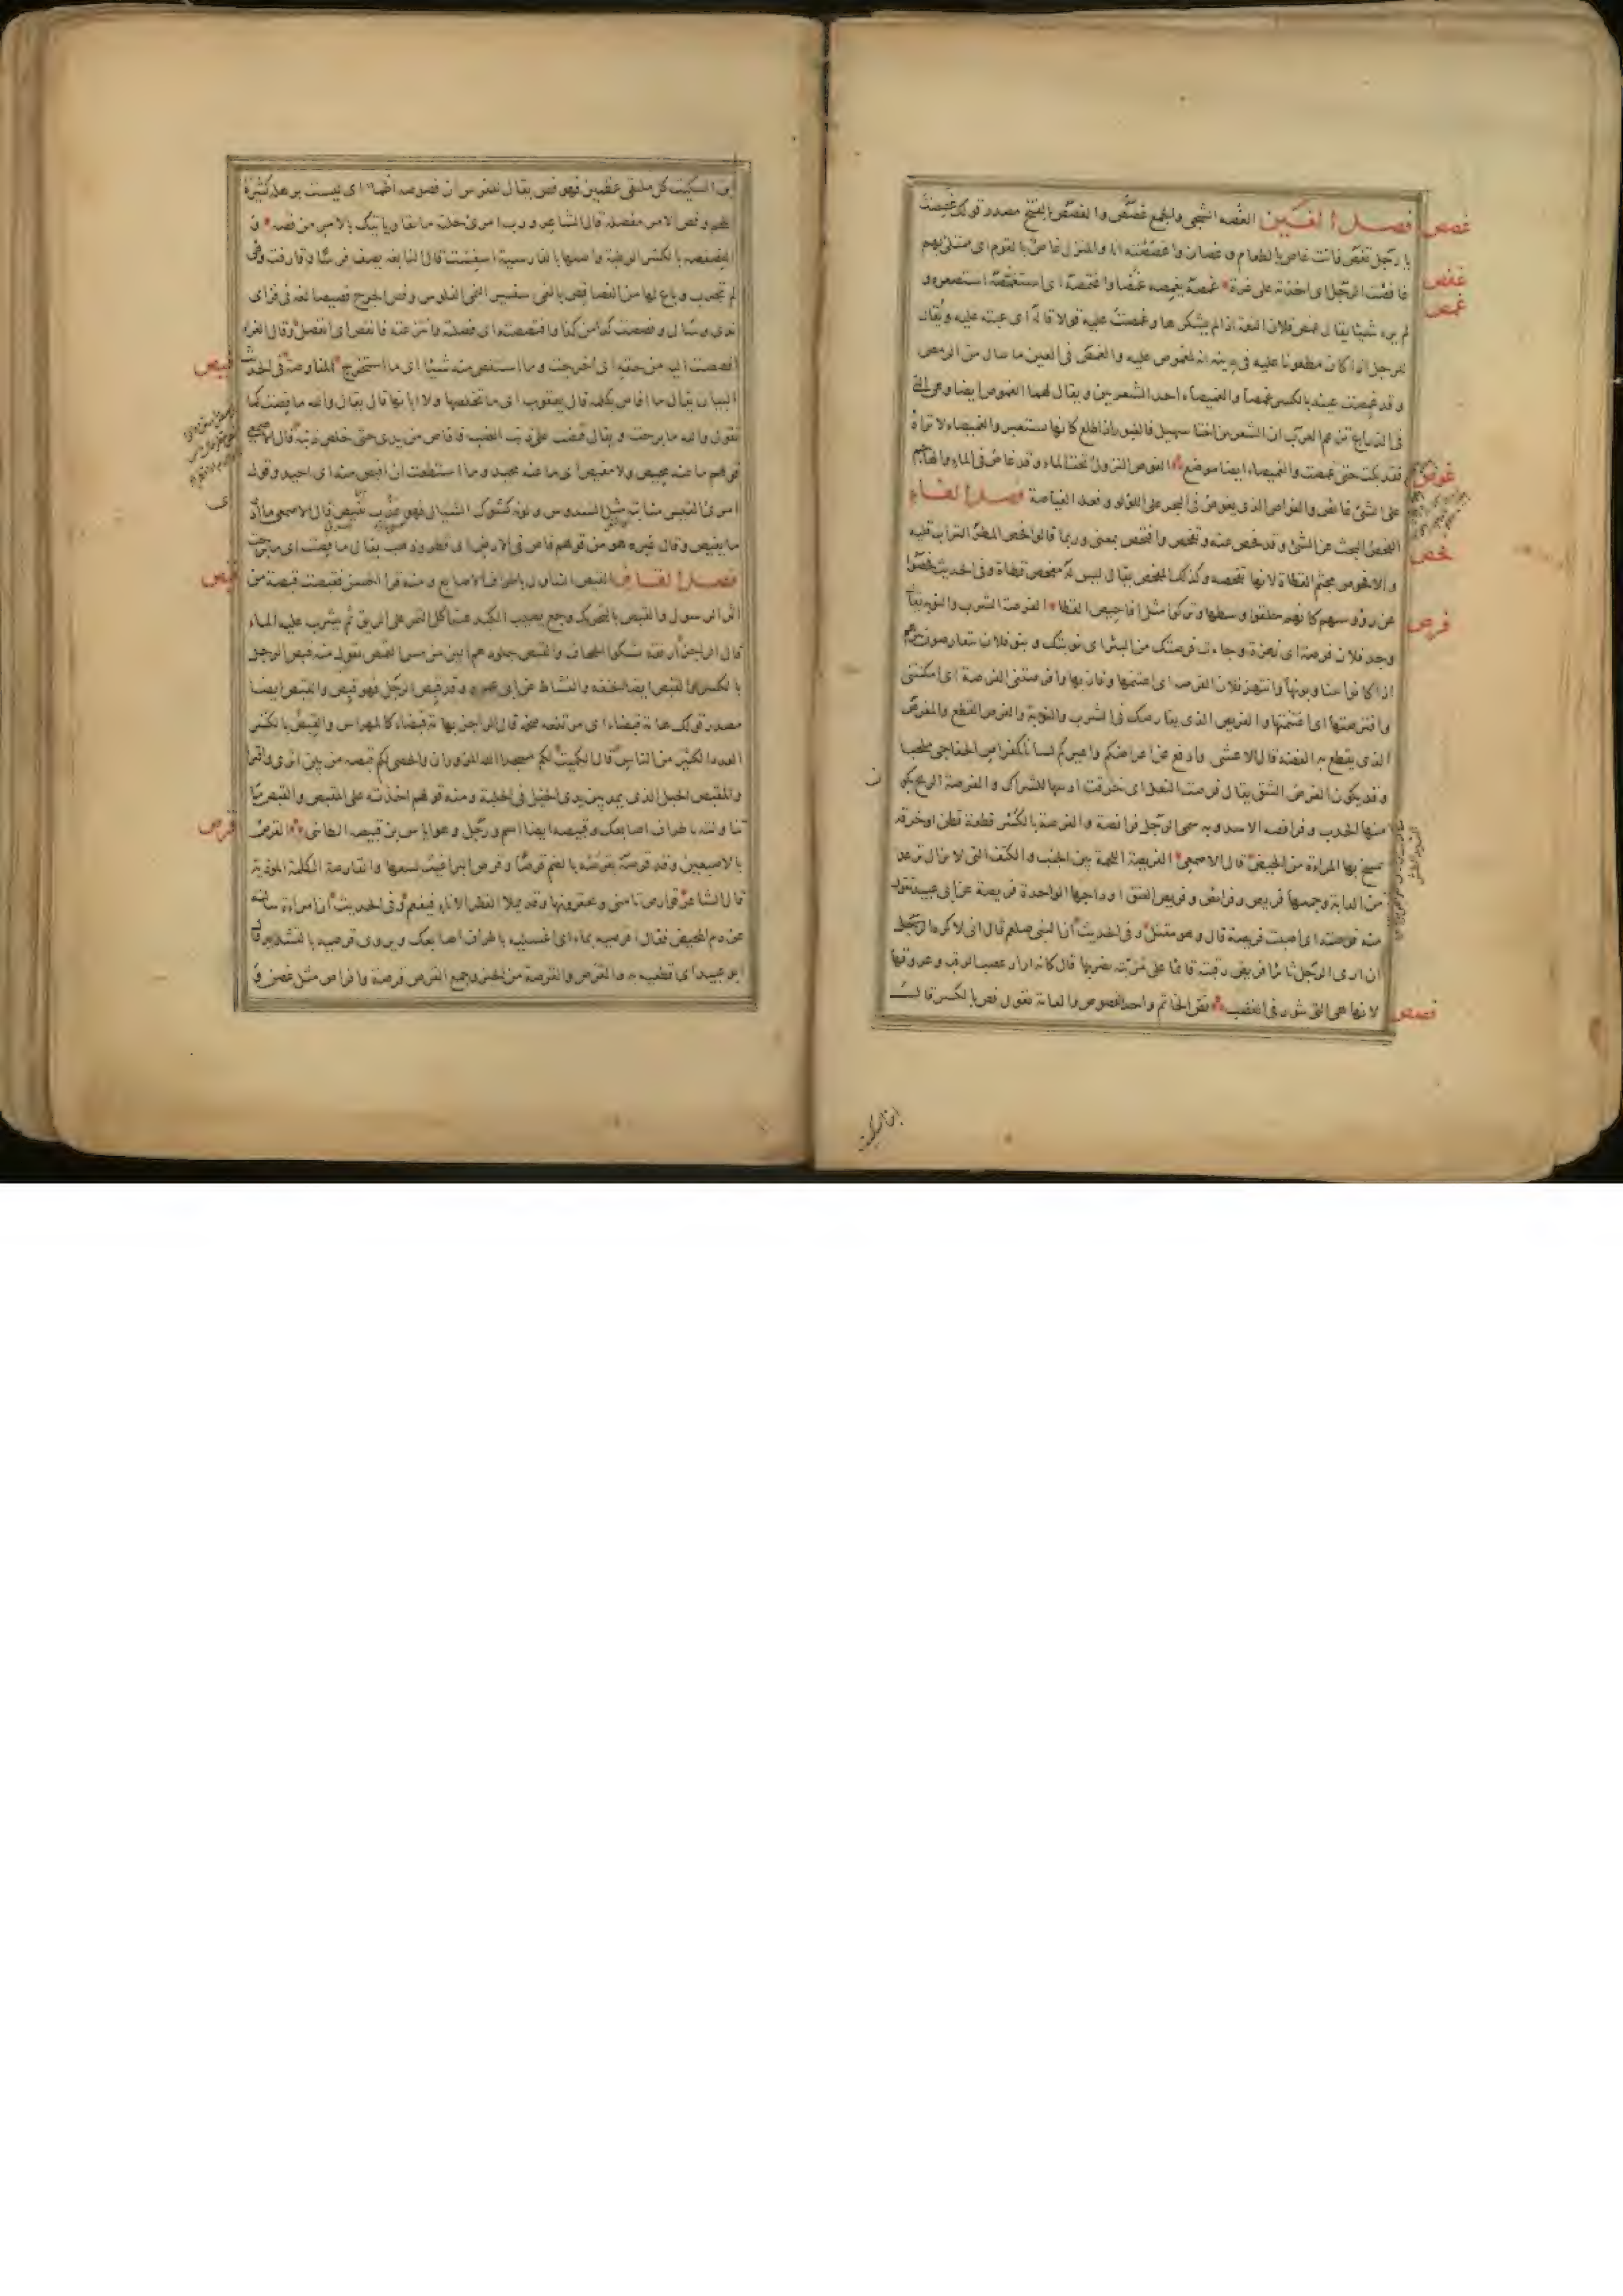 غصص فصل الغين الغصه الشجى والجمع غصص والغصص بالفتح مصدر قولك غصصت
يا رجل تغص فانت غاص بالطعام وغصان واغصصته انا والمنزل غاص بالقوم اى ممتلئ بهم
غفص غافصت الرجل اى اخذته على غرة غمصه يغمصه غمصا واغتمصه اى استصغره و
غمص لم يره شيئا يقال غمص فلان النعمة اذا لم يشكرها وغمصت عليه قولا قاله اى عبته عليه ويقال
للرجل اذا كان مطعونا عليه فى دينه انه لمغموص عليه والغمص فى العين ما سال من الرمص
وقد غمصت عينه بالكسر غمصا والغميصاء احدى الشعريين ويقال لها الغموص ايضا وهى التى
فى الذراع تزعم العرب ان الشعريين اختا سهيل فالعبور اذا طلع كانها ستعبر والغميصاء لا تراه
غوص فقد بكت حتى غمصت والغميصاء ايضا موضع الغوص النزول تحت الماء وقد غاص فى الماء والهاجم
على الشئ غائص والغواص الذى يغوص فى البحر على اللؤلؤ وفعله الغياصة فصل الفاء
فحص الفحص البحث عن الشئ وقد فحص عنه وتفحص وافتحص بمعنى وربما قالوا فحص المطر التراب قلبه
والافحوص مجثم القطاة لانها تفحصه وكذلك المفحص يقال ليس له مفحص قطاة وفى الحديث فحصوا
فرص عن رؤوسهم كانهم حلقوا وسطها وتركوا مثل افاحيص القطا الفرصة الشرب والنوبة يقال
وجد فلان فرصة اى نهزة وجاءت فرصتك من البئر اى نوبتك وبنو فلان يتفارصون بئرهم
اذا كانوا يتناوبونها وانتهز فلان الفرصة اى اغتنمها وفاز بها وافرصتنى الفرصة اى امكنتنى
وافترصتها اى اغتنمتها والفريص الذى يفارصك فى الشرب والنوبة والفرص القطع والمفرص
الذى يقطع به الفضة قال الاعشى وادفع عن اعراضكم واعيركم لسانا كمفراص الخفاجى ملحبا
وقد يكون الفرص الشق يقال فرصت النعل اى خرقت اذنيها للشراك والفرصة الريح يكون
منها الحدب وفرافصة الاسد وبه سمى الرجل فرافصة والفرصة بالكسر قطعة قطن او خرقة
تمسح بها المراة من الحيض قال الاصمعى الفريصة اللحمة بين الجنب والكتف التى لا تزال ترعد
من الدابة وجمعها فريص وفرائص وفريص العنق اوداجها الواحدة فريصة عن ابى عبيد تقول
منه فرصته اى اصبت فريصته قال وهو مقتل وفى الحديث ان النبى صلعم قال انى لاكره ان
ان ارى الرجل ثائرا فريص رقبته قائما على مريته يضربها قال كانه اراد عصب الرقبة وعروقها
فصص لانها هى التى تثور فى الغضب فص الخاتم واحد الفصوص والعامة تقول فص بالكسر قال
ابن السكيت
ابن السكيت كل ملتقى عظمين فهو فص يقال للفرس ان فصوصه لظماء اى ليست برهلة كثيرة
اللحم وفص الامر مفصله قال الشاعر ورب امرئ خلته مائقا وياتيك بالامر من فصه و
الفصفصة بالكسر الرطبة واصلها بالفارسية اسفست قال النابغة يصف فرسا وقارفت وهى
لم تجرب وباع لها من الفصافص بالنمى سفسير النمى الفلوس وفص الجرح فصيصا لغة فى فز اى
ندى وسال وفصصت كذا من كذا وافتصصته اى فصلته وانتزعته فانفص اى انفصل وقال الفراء
فيص افصصت اليه من حقه اى اخرجت وما استفص منه شيئا اى ما استخرج المفاوصة فى الحديث
البيان يقال ما افاص بكلمة قال يعقوب اى ما تخلصها ولا ابانها قال يقال والله ما فصت كما
تقول والله ما برحت ويقال قبضت على ذنب الضب فافاص من يدى حتى خلص ذنبه قال الاصمعى
قولهم ما عنه محيص ولا مفيص اى ما عنه محيد وما استطعت ان افيص منه اى احيد وقول
امرئ القيس منابته مثل السدوس ولونه كشوك السيال فهو عذب يفيص قال الاصمعى ما ادرى
ما يفيص وقال غيره هو من قولهم فاص فى الارض اى قطر وذهب يقال ما فصت اى ما برحت
قبص فصل القاف القبص التناول باطراف الاصابع ومنه قرا الحسن فقبصت قبصة من
اثر الرسول والقبص بالتحريك وجع يصيب الكبد عن اكل التمر على الريق ثم يشرب عليه الماء
قال الراجز ارفقة تشكو الجحاف والقبص جلودهم الين من مس القمص تقول منه قبص الرجل
بالكسر والقبص ايضا الخفة والنشاط عن ابى عمرو وقد قبص الرجل فهو قبص والقبص ايضا
مصدر قولك هامة قبصاء اى مرتفعة ضخمة قال الراجز بهامة قبصاء كالمهراس والقبص بالكسر
العدد الكثير من الناس قال الكميت لكم مسجدا الله المزوران والحصى لكم قبصه من بين اثرى واقترا
والمقبص الحبل الذى يمد بين يدى الخيل فى الحلبة ومنه قولهم اخذته على المقبص والقبص ما
قرص تناولته باطراف اصابعك وقبيصة ايضا اسم رجل وهو اياس بن قبيصة الطائى القرص
بالاصبعين وقد قرصه يقرصه بالضم قرصا وقرص البراغيث لسعها والقارصة الكلمة المؤذية
قال الشاعر قوارص تاتينى وتحتقرونها وقد يملا القطر الاناء فيفعم وفى الحديث ان امراة سالته
عن دم المحيض فقال اقرصيه بماء اى اغسليه باطراف اصابعك ويروى قرصيه بالتشديد قال
ابو عبيد اى قطعيه به والقرص والقرصة من الخبز وجمع القرص قرصة واقراص مثل غصن و